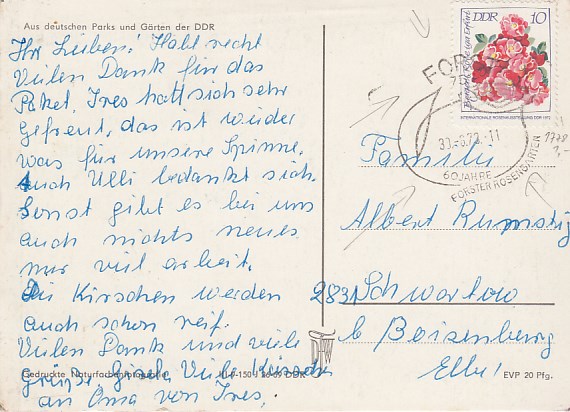 Aus deutschen Parks und Gärten der DDR
Ihr Lieben! Habt recht
Vielen Dank für das
Paket. Ines hatt sich sehr
gefreut, das ist wieder
was für unsere Spinne.
Auch Ulli bedankt sich.
Sonst gibt es bei uns
auch nichts neues
nur viel arbeit.
Die Kirschen werden
auch schon reif.
Vielen Dank und viele
Grüße Gisela Viele
an Oma von Ines.
Gedruckte Naturfarbenfotografie
DDR 10
INTERNATIONALE ROSENAUSSTELLUNG DDR 1972
FORST
60 JAHRE
FORSTER ROSENGARTEN
1778
Familie
Albert
2831 Schwartow
b Boizenburg
Elbe!
EVP 20 Pfg.